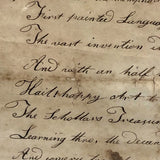 First painted Langua
The vast invention i
And with un half
Hail happy art to
The Schollars Treasur
Learning thro, the deca